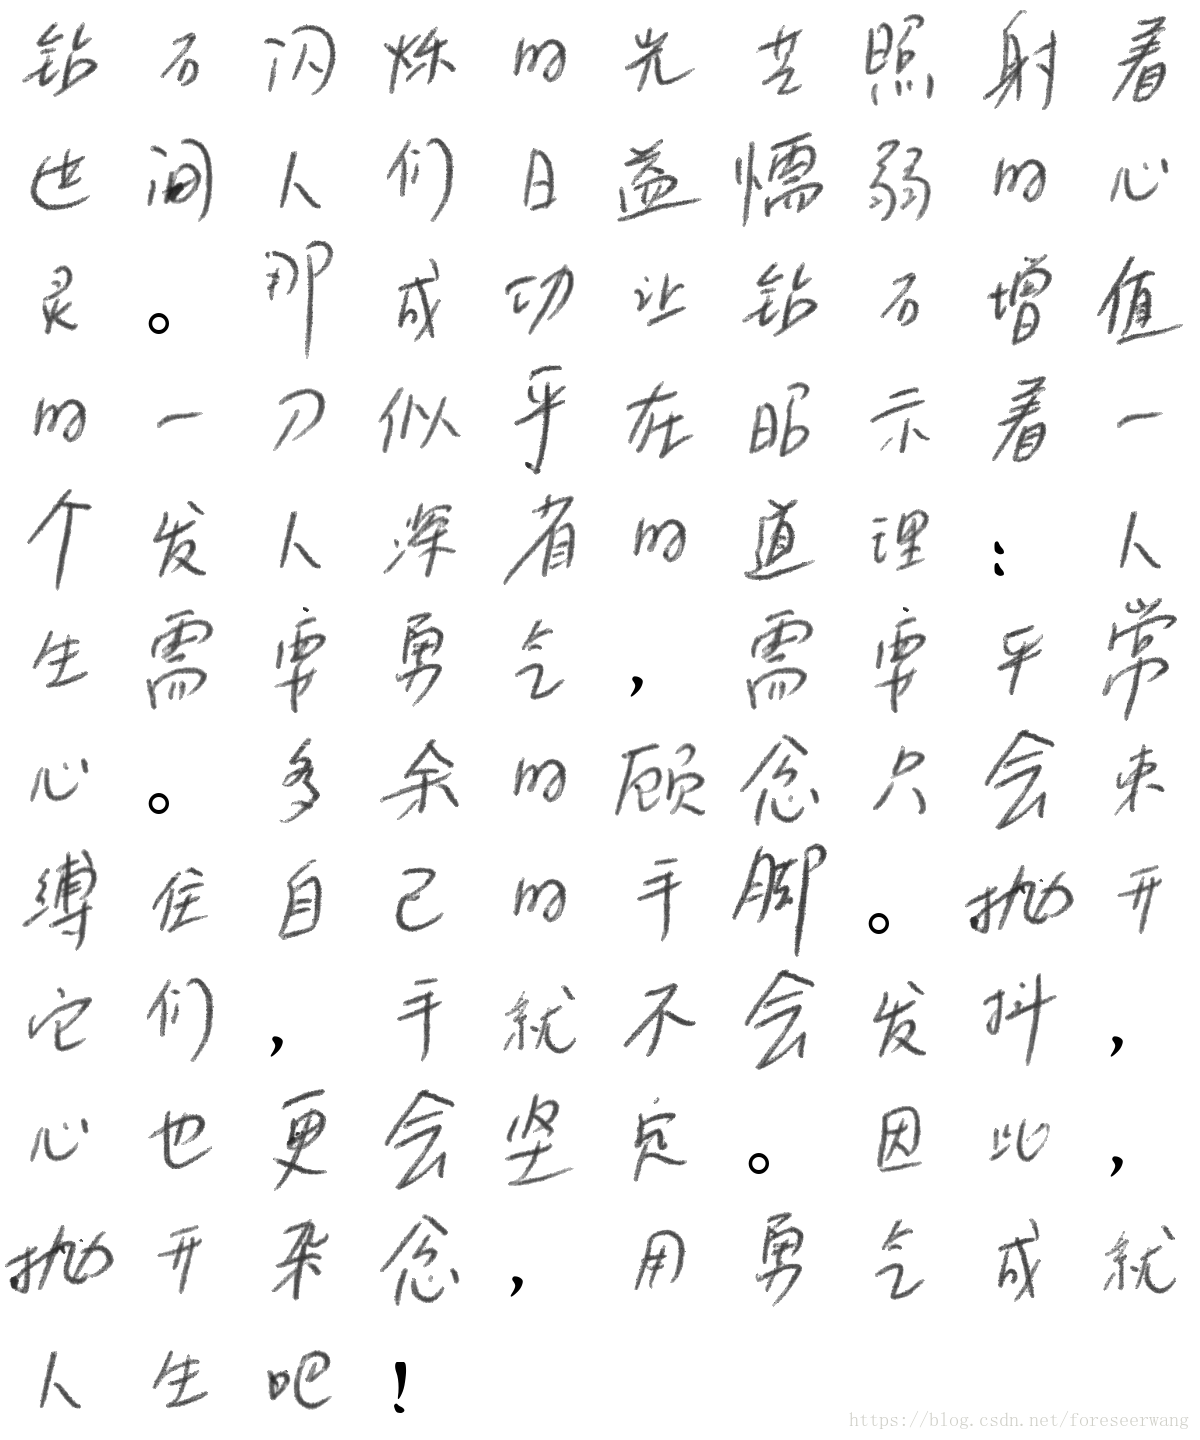 钻石闪烁的光芒照射着
世间人们日益懦弱的心
灵。那成功让钻石增值
的一刀似乎在昭示着一
个发人深省的道理:人
生需要勇气,需要平常
心。多余的顾念只会束
缚住自己的手脚。抛开
它们,手就不会发抖,
心也更会坚定。因此,
抛开杂念,用勇气成就
人生吧!
https://blog.csdn.net/foreseerwang